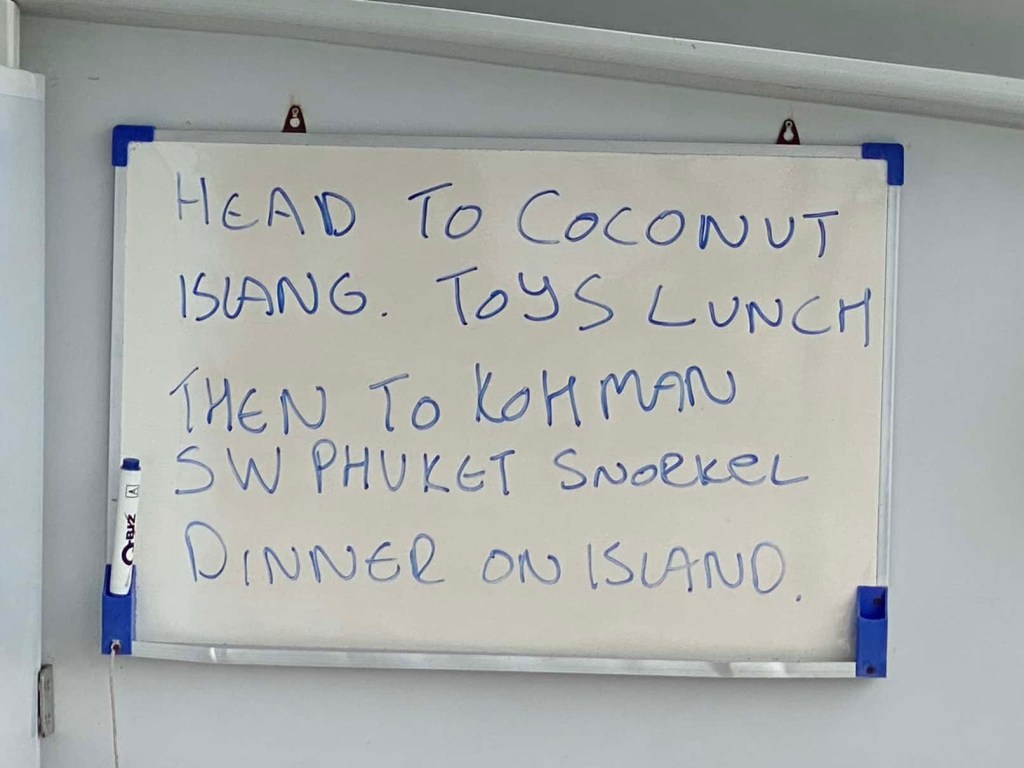 HEAD TO COCONUT
ISLANG. TOYS LUNCH
THEN TO KOH MAN
SW PHUKET SNORKEL
DINNER ON ISLAND.